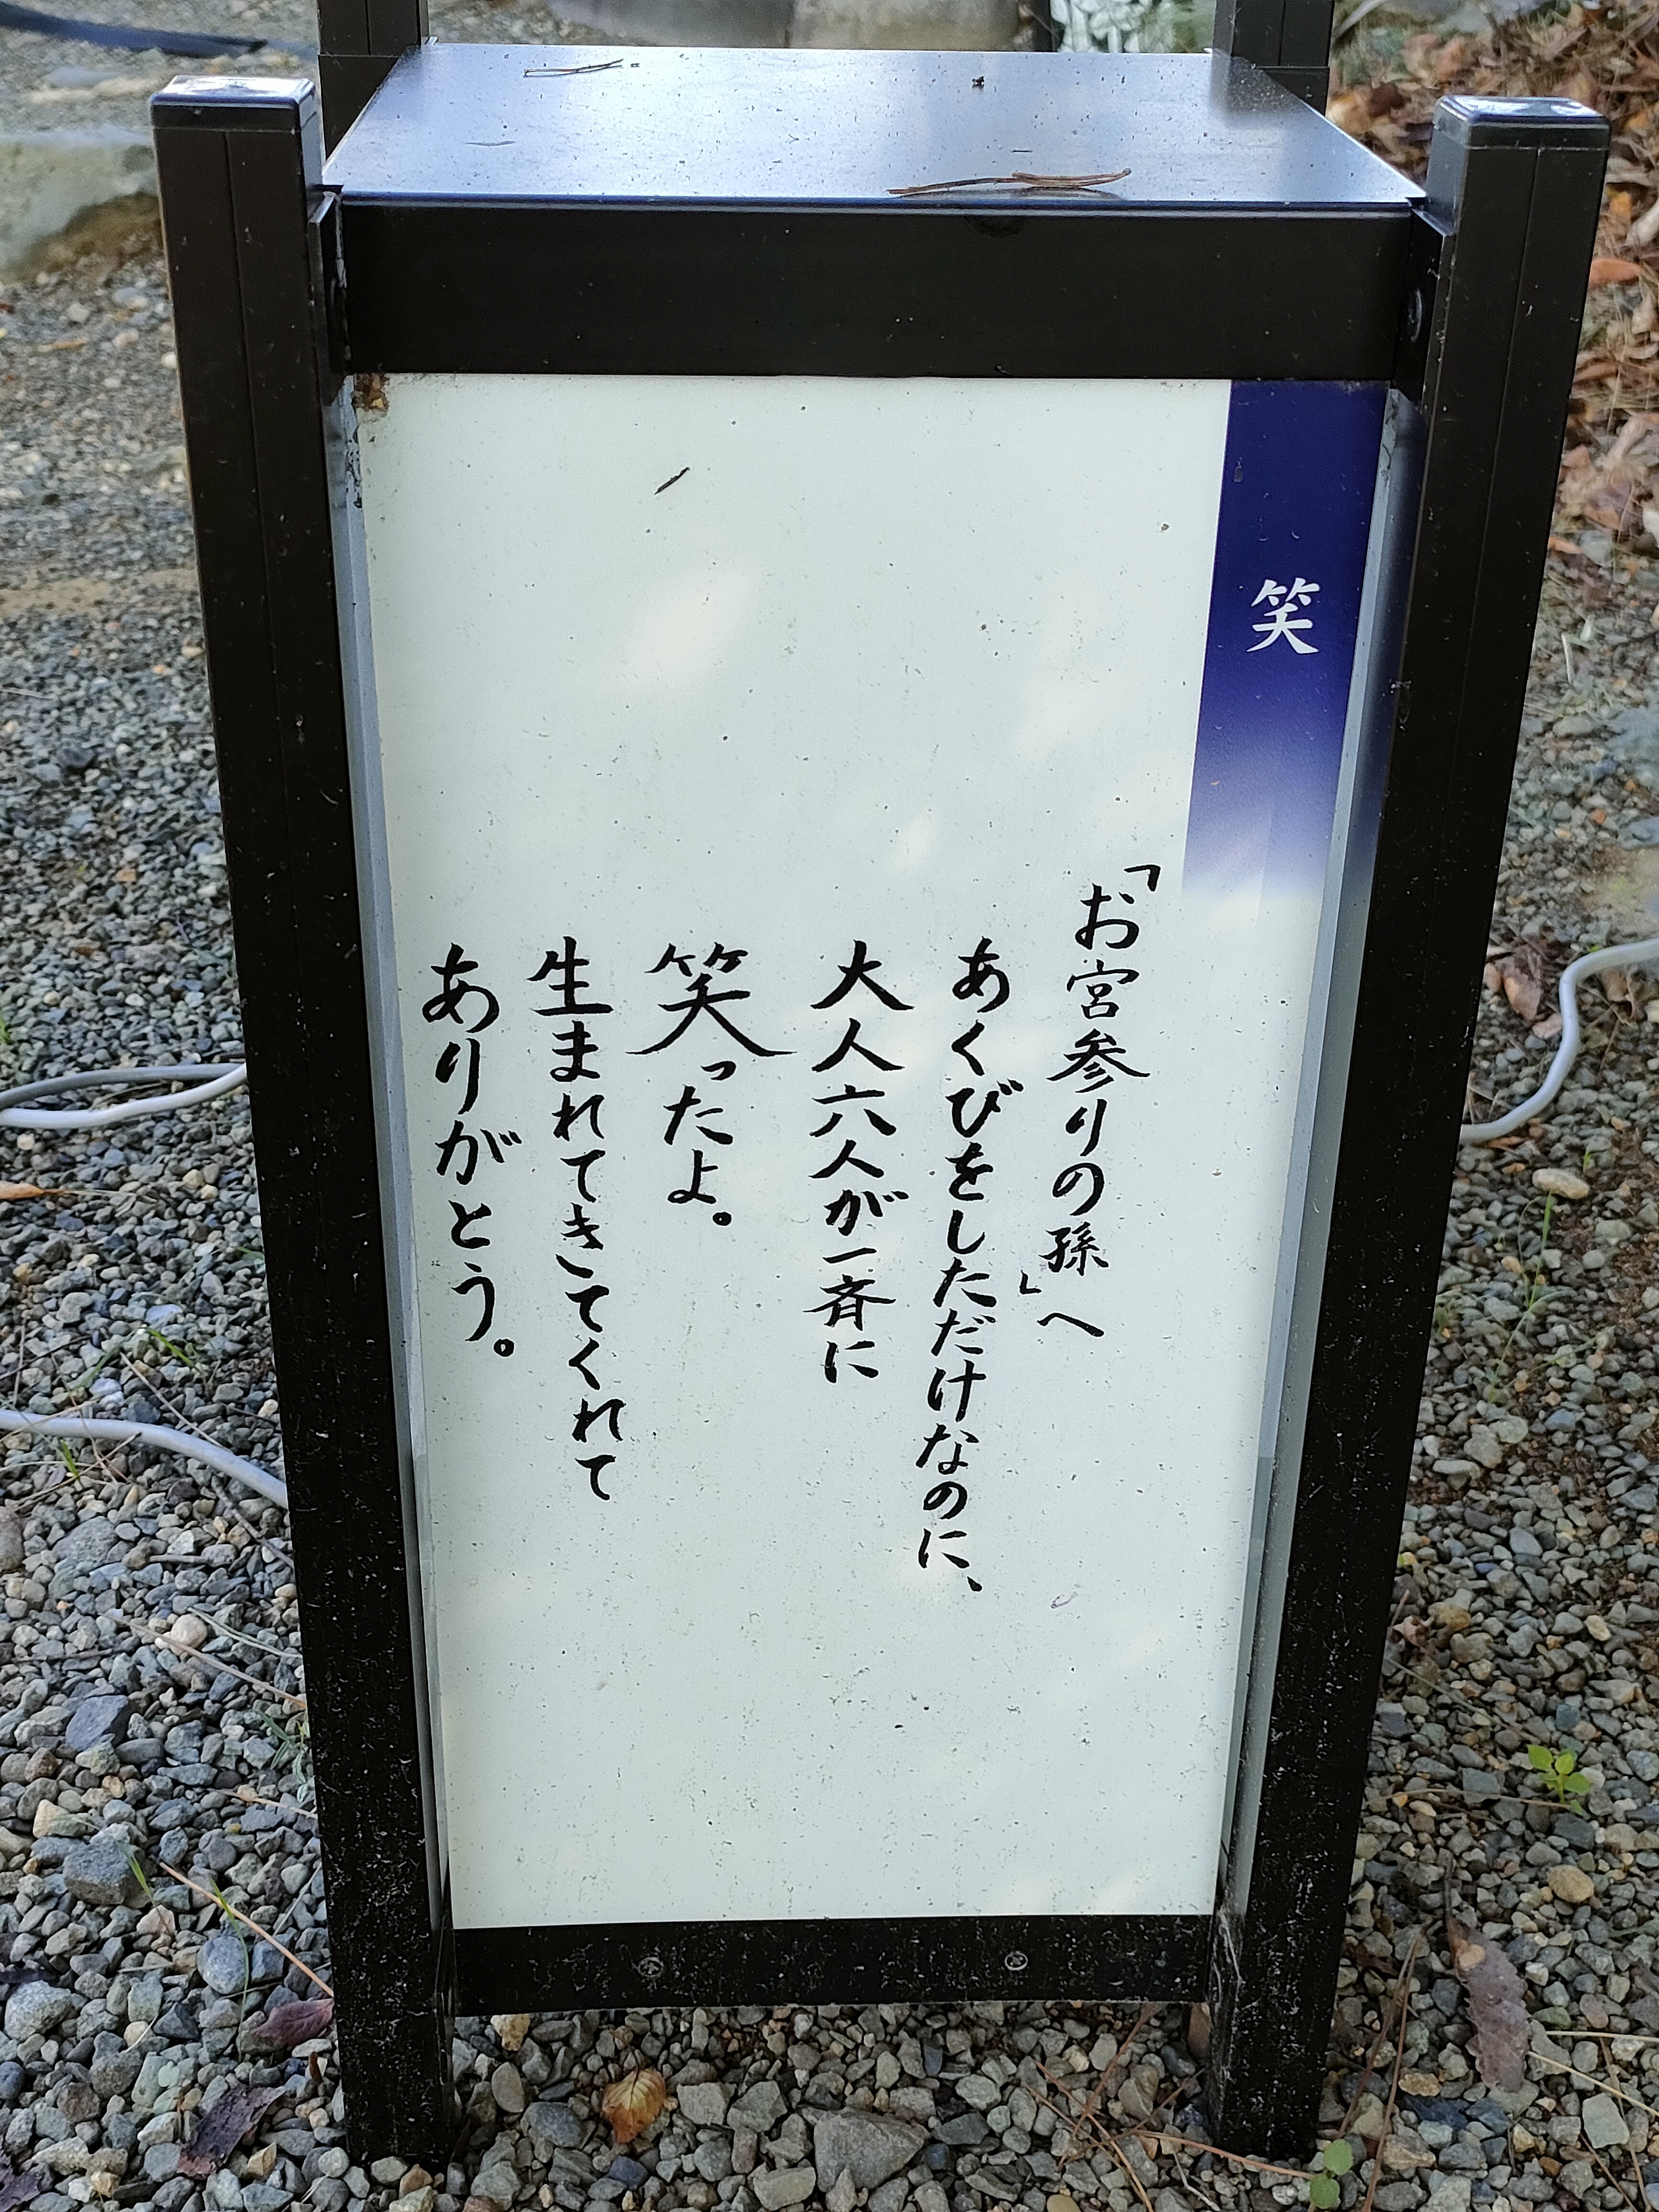 笑
「お宮参りの孫」へ
あくびをしただけなのに、
大人六人が一斉に
笑ったよ。
生まれてきてくれて
ありがとう。